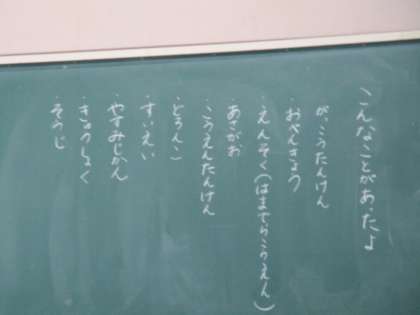 こんなことがあったよ
・がっこうたんけん
・おべんきょう
・えんそく(はまでらこうえん)
あさがお
・こうえんたんけん
・どろんこ
・すいえい
・やすみじかん
・きゅうしょく
・そうじ